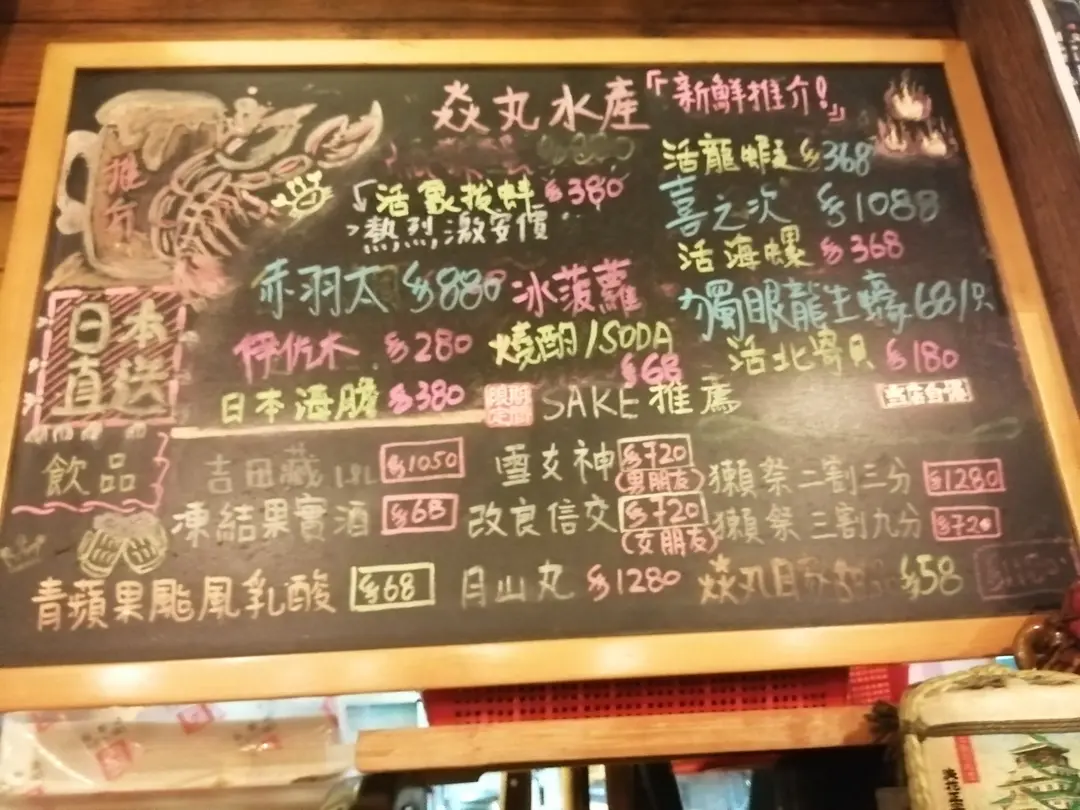 焱丸水產「新鮮推介!」
推介
活龍蝦 $368
活象拔蚌 $380
熱烈激安價
喜之次 $1088
活海螺 $368
赤羽太 $880
冰菠蘿
燒酎/SODA
$68
獨眼龍生蠔 68/只
日本
直送
伊佐木 $280
活北寄貝 $180
日本海膽 $380
SAKE 推薦
飲品
吉田藏 $1050
雪女神 $720
(男朋友)
獺祭二割三分 $1280
凍結果實酒 $68
改良信交 $720
(女朋友)
獺祭三割九分 $720
青蘋果颱風乳酸 $68
月山丸 $1280
焱丸日 $58